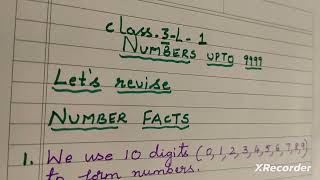 class.3-L-1
NUMBERS UPTO 9999
Let's revise
NUMBER FACTS
1. We use 10 digits (0,1,2,3,4,5,6,7,8,9)
to form numbers.
XRecorder